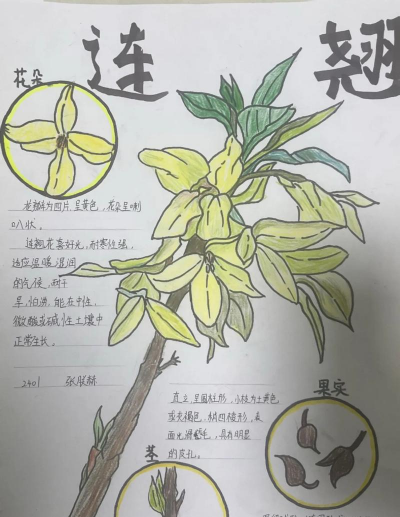 连翘
花朵
花瓣为四片,呈黄色,花朵呈喇
叭状。
连翘花喜好光,耐寒性强,
适应温暖湿润
的气候,耐干
旱,怕涝,能在中性,
微酸或碱性土壤中
正常生长。
2401
直立,呈圆柱形,小枝为土黄色
或灰褐色,稍四棱形,表
面光滑
具有明显
的皮孔。
果实
茎